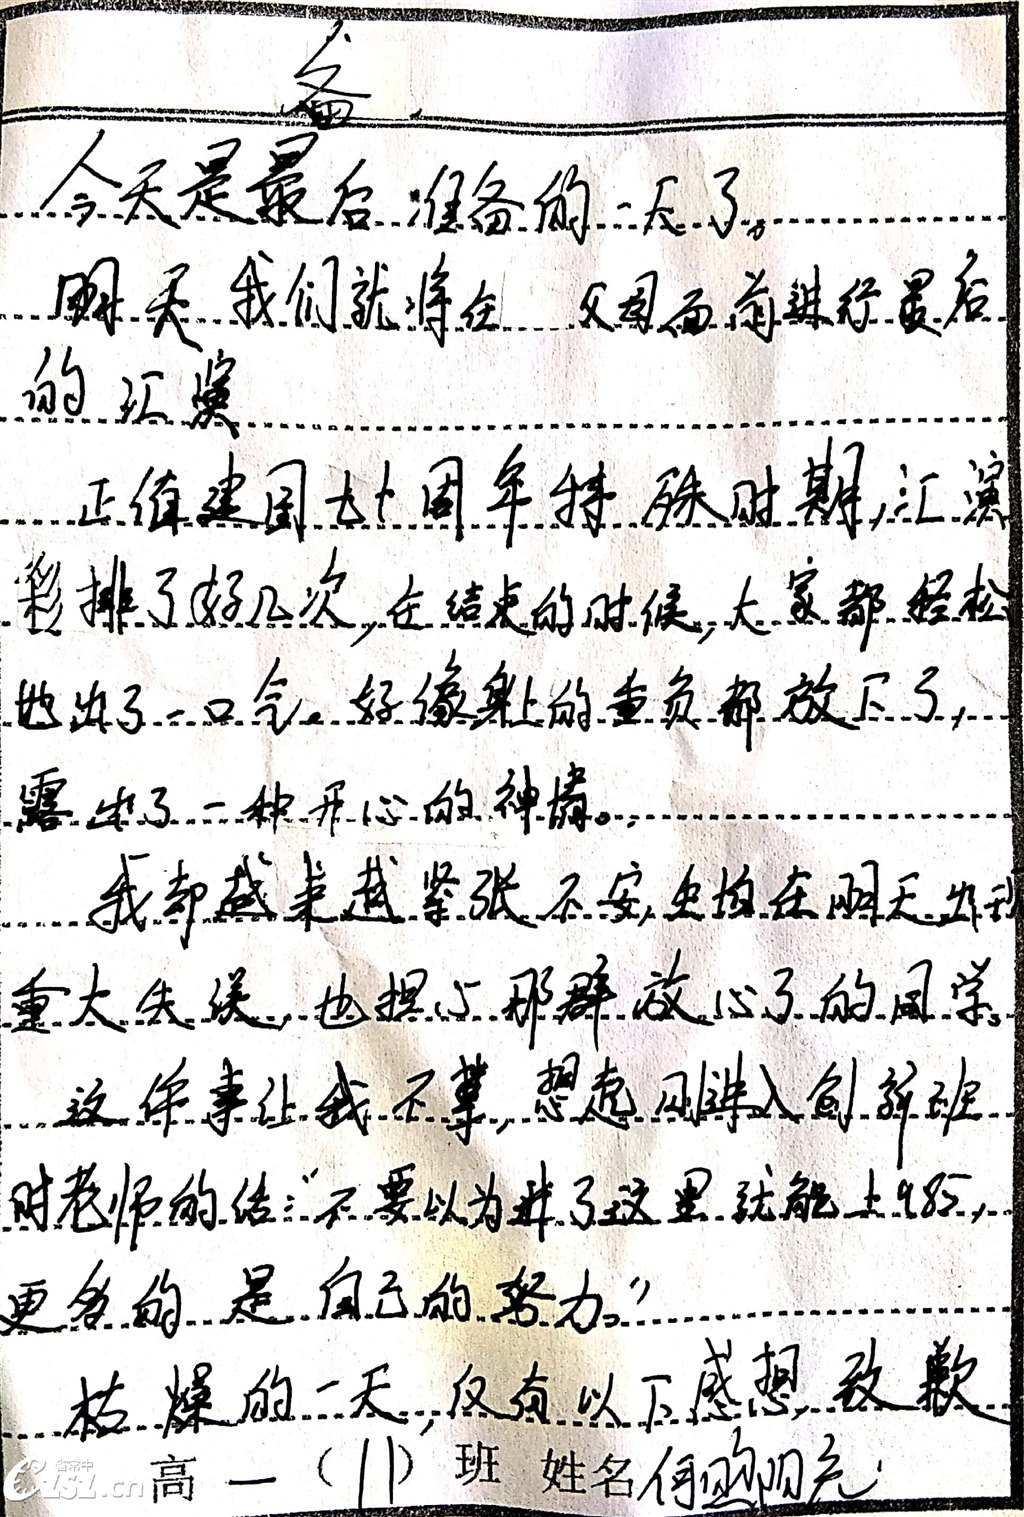 备
今天是最后准备的一天了。
明天我们就将在 父母面前进行最后
的汇演
正值建国七十周年特殊时期,汇演
彩排了好几次,在结束的时候,大家都轻松
地出了一口气。好像身上的重负都放下了,
露出了一种开心的神情。
我却越来越紧张不安,生怕在明天出现
重大失误,也担心那群放心了的同学。
这件事让我不禁,想起刚进入创新班
时老师的话:"不要以为进了这里就能上985,
更多的是自己的努力。"
枯燥的一天,仅有以下感想,致歉
高一(11)班 姓名何
省常中
CZSZ.cn